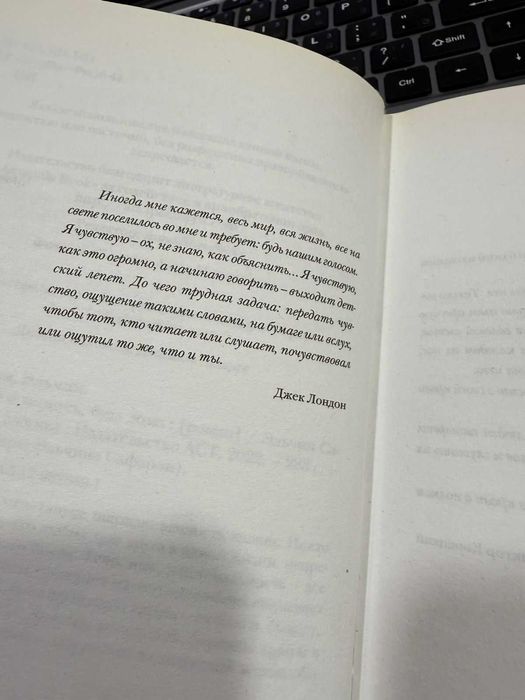 Shift
Ctrl
Иногда мне кажется, весь мир, вся жизнь, все на
свете поселилось во мне и требует: будь нашим голосом.
Я чувствую – ох, не знаю, как объяснить... Я чувствую,
как это огромно, а начинаю говорить – выходит дет-
ский лепет. До чего трудная задача: передать чув-
ство, ощущение такими словами, на бумаге или вслух,
чтобы тот, кто читает или слушает, почувствовал
или ощутил то же, что и ты.
Джек Лондон